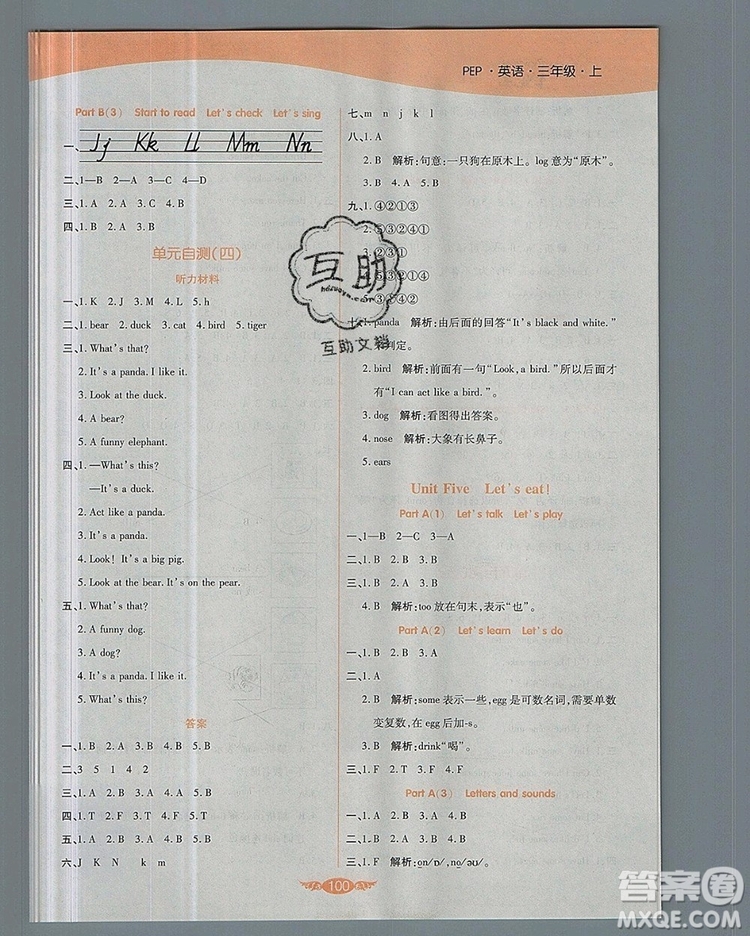 PEP · 英语 · 三年级 · 上
Part B(3) Start to read Let's check Let's sing
一、Jj Kk Ll Mm Nn
二、1—B 2—A 3—C 4—D
三、1. A 2. A 3. C 4. B
四、1. B 2. B 3. A 4. B
单元自测(四)
听力材料
一、1. K 2. J 3. M 4. L 5. h
二、1. bear 2. duck 3. cat 4. bird 5. tiger
三、1. What's that?
2. It's a panda. I like it.
3. Look at the duck.
4. A bear?
5. A funny elephant.
四、1. —What's this?
—It's a duck.
2. Act like a panda.
3. Look at the bird.
4. Look! It's a big pig.
5. Look at the bear. It's on the pear.
五、1. What's that?
2. A funny dog.
3. A dog?
4. It's a panda. I like it.
5. What's this?
答案
一、1. B 2. A 3. B 4. B 5. A
二、3 5 1 4 2
三、1. A 2. B 3. B 4. A 5. B
四、1. T 2. F 3. T 4. F 5. F
五、1. A 2. B 3. A 4. B 5. A
六、J K N k m
七、m n j k l
八、1. A
2. B 解析:句意:一只狗在原木上。log 意为“原木”。
3. B 4. A 5. B
九、1. ④②①③
2. ⑤③②④①
3. ②③①
4. ⑤②①④
5. ③⑤④②
十、1. panda 解析:由后面的回答“It's black and white.”
判定。
2. bird 解析:前面有一句“Look, a bird.”所以后面才
有“I can act like a bird.”。
3. dog 解析:看图得出答案。
4. nose 解析:大象有长鼻子。
5. ears
Unit Five Let's eat!
Part A(1) Let's talk Let's play
一、1—B 2—C 3—A
二、1. A 2. B 3. B
三、1. F 2. T 3. B
4. B 解析:too 放在句末,表示“也”。
Part A(2) Let's learn Let's do
一、1. B 2. B 3. A
二、1. A
2. B 解析:some 表示一些,egg 是可数名词,需要单数
变复数,在 egg 后加-s。
3. B 解析:drink“喝”。
三、1. F 2. T 3. F 4. F
Part A(3) Letters and sounds
一、1. A 2. B 3. A 4. B
二、1. A 2. A 3. B 4. A
三、1. F 解析:on/ɒ/,no/əʊ/
100
互助
互助文档
答案圈
MXQE.COM